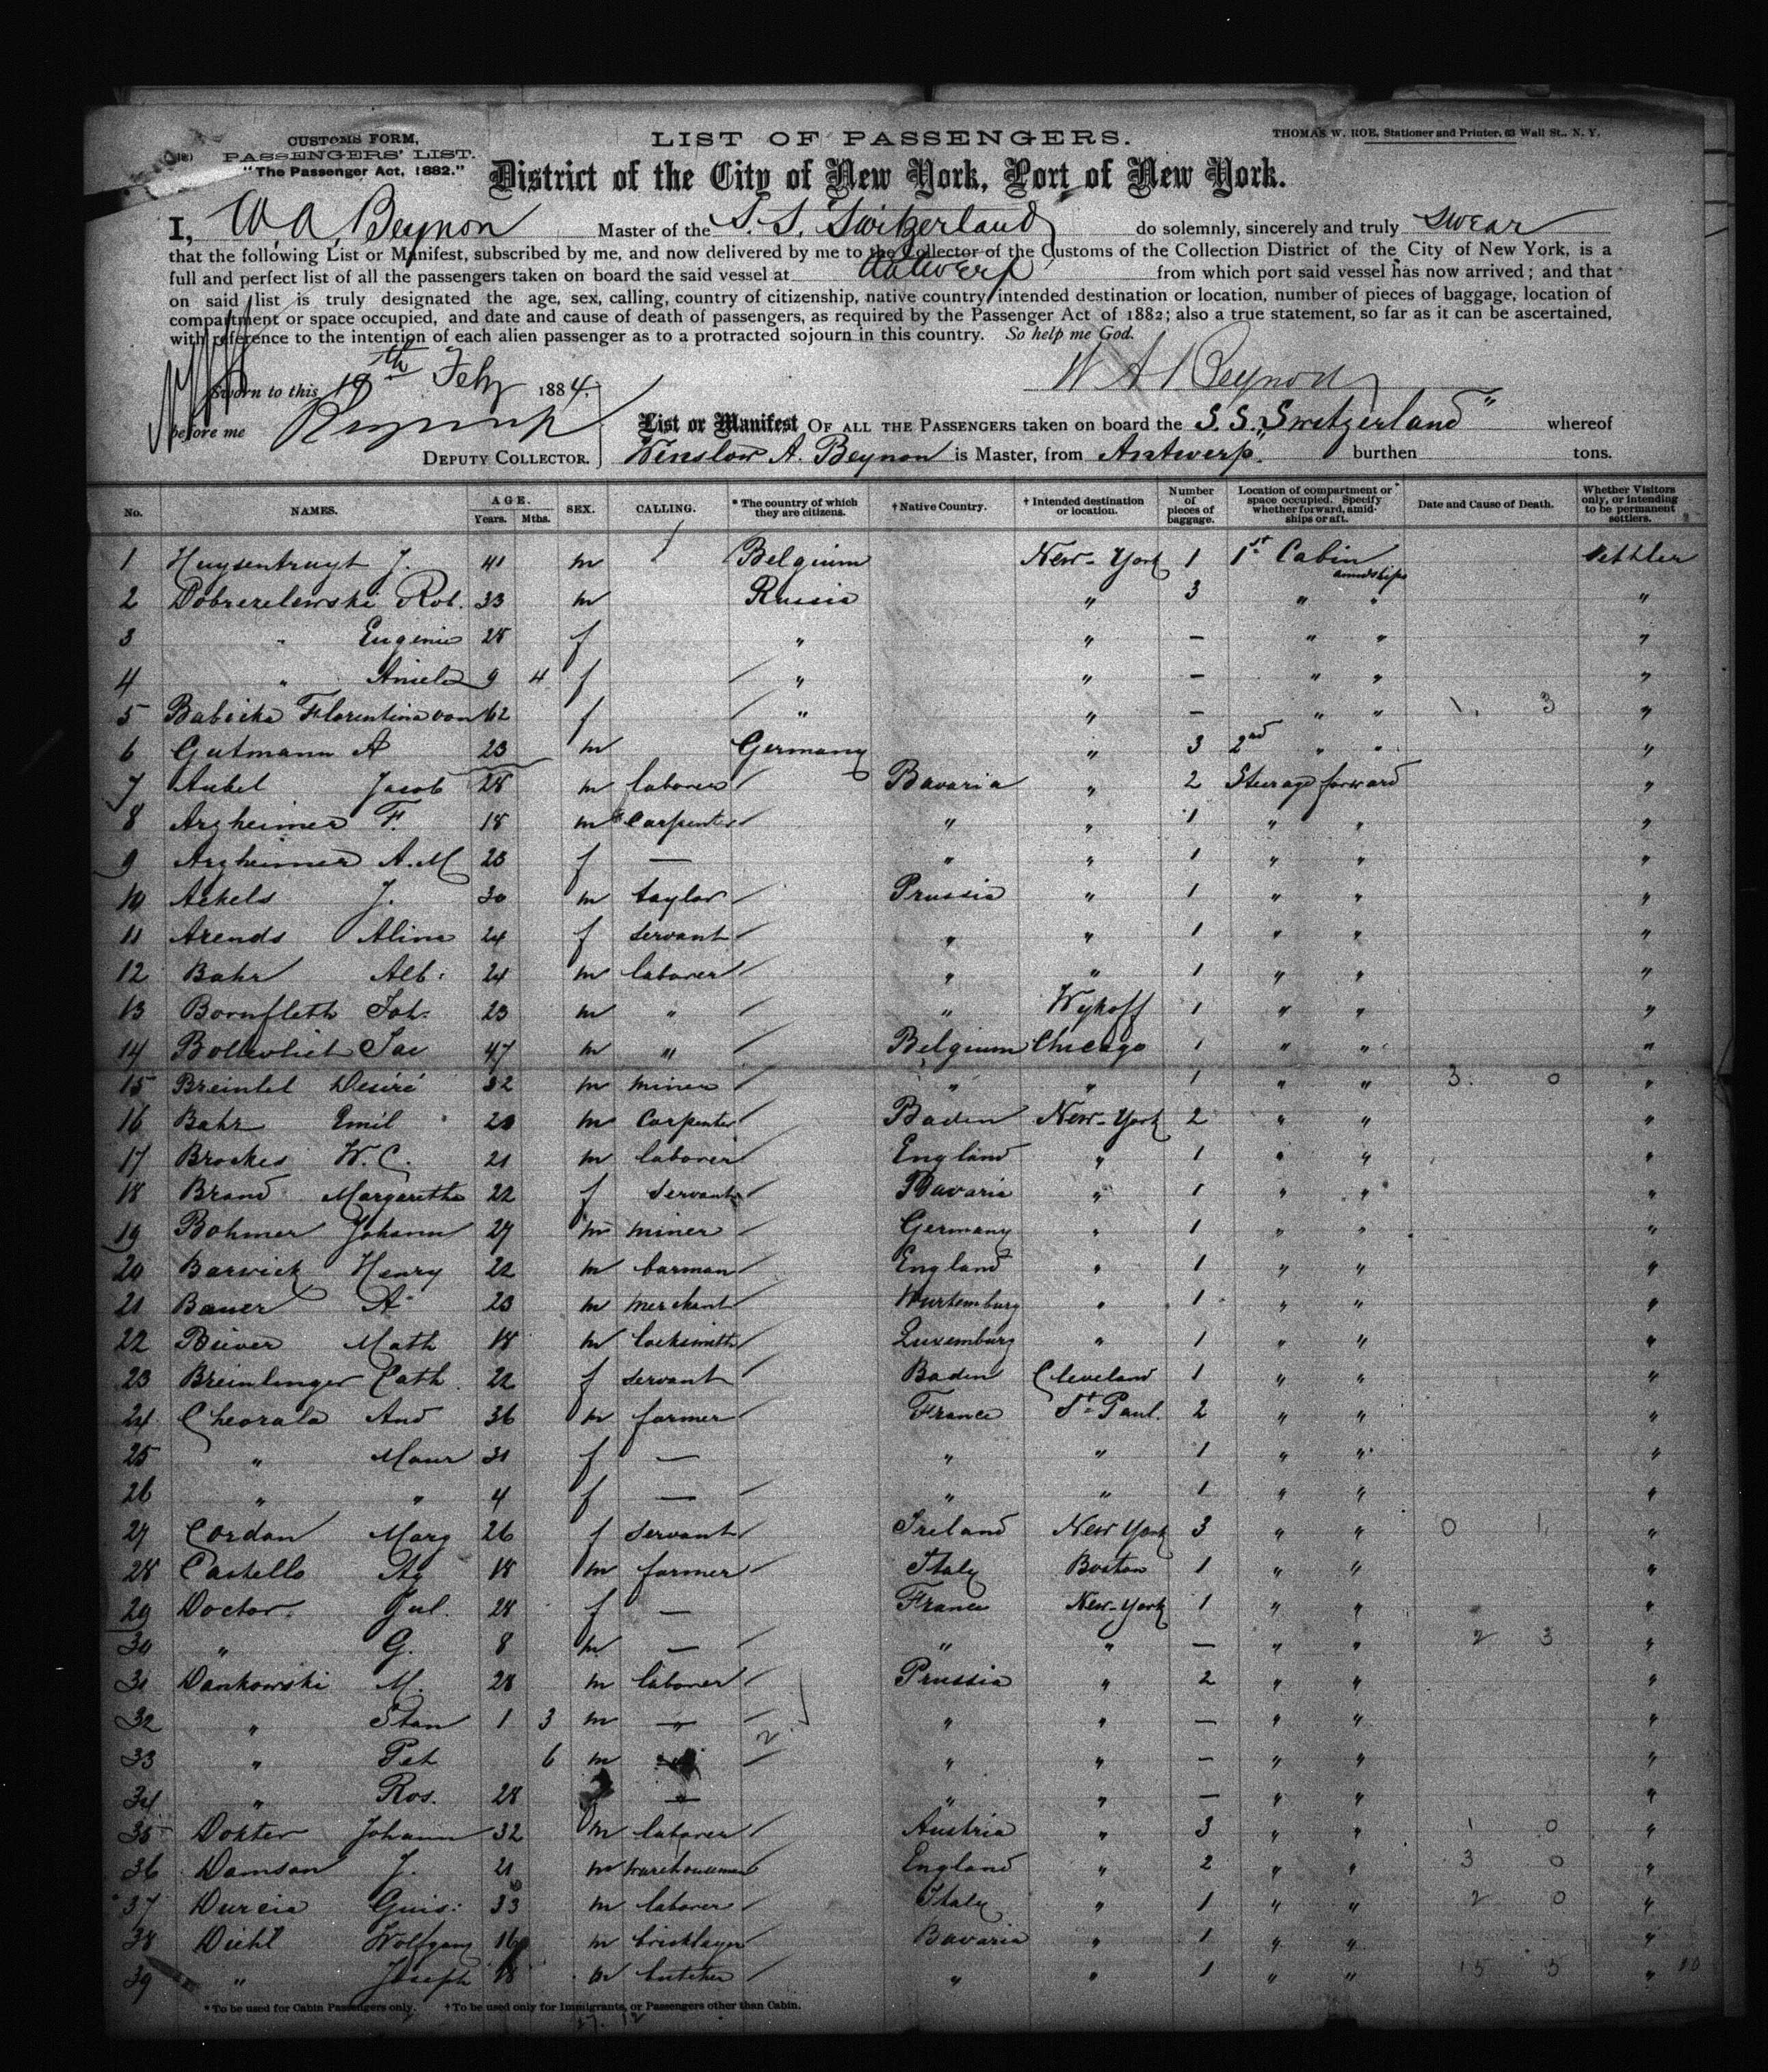 CUSTOMS FORM,
PASSENGERS' LIST.
"The Passenger Act, 1882."
LIST OF PASSENGERS.
THOMAS W. ROE, Stationer and Printer, 63 Wall St., N. Y.
District of the City of New York, Port of New York.
I, W. A. Beynon Master of the S. S. Switzerland do solemnly, sincerely and truly swear
that the following List or Manifest, subscribed by me, and now delivered by me to the Collector of the Customs of the Collection District of the City of New York, is a
full and perfect list of all the passengers taken on board the said vessel at Antwerp from which port said vessel has now arrived; and that
on said list is truly designated the age, sex, calling, country of citizenship, native country, intended destination or location, number of pieces of baggage, location of
compartment or space occupied, and date and cause of death of passengers, as required by the Passenger Act of 1882; also a true statement, so far as it can be ascertained,
with reference to the intention of each alien passenger as to a protracted sojourn in this country. So help me God.
Sworn to this 19th Feby 1884. W A Beynon
before me
List or Manifest OF ALL THE PASSENGERS taken on board the S. S. Switzerland" whereof
DEPUTY COLLECTOR. Winslow A. Beynon is Master, from Antwerp, burthen tons.
No. NAMES. AGE. Years. Mths. SEX. CALLING. * The country of which they are citizens. † Native Country. † Intended destination or location. Number of pieces of baggage. Location of compartment or space occupied. Specify whether forward, amidships or aft. Date and Cause of Death. Whether Visitors only, or intending to be permanent settlers.
1 Huysentruyt J. 41 m Belgium New-York 1 1st Cabin amidships Settler
2 Dobrezelewski Rob. 33 m Russia " 3 " " "
3 " Eugenie 28 f " " — " " "
4 " Aniela 9 4 f " " — " " "
5 Babicka Florentina von 62 f " " — " " 1. 3 "
6 Gutmann A 23 m Germany " 3 2nd " " "
7 Ankel Jacob 28 m laborer Bavaria " 2 Steerage forward "
8 Arzheimer F. 18 m Carpenter " " 1 " " "
9 Arzheimer A. M 23 f — " " 1 " " "
10 Ackels J. 30 m taylor Prussia " 1 " " "
11 Arends Alina 24 f servant " " 1 " " "
12 Bahr Alb. 24 m laborer " " 1 " " "
13 Bornfleth Joh. 23 m " " Wykoff 1 " " "
14 Jac 47 m " Belgium Chicago 1 " " "
15 Breintel Desiré 32 m miner " " 1 " " 3. 0 "
16 Bahr Emil 20 m Carpenter Baden New-York 2 " " "
17 Brockes W. C. 21 m laborer England " 1 " " "
18 Brand Margaretha 22 f servant Bavaria " 1 " " "
19 Bohmer Johann 27 m miner Germany " 1 " " "
20 Barwick Henry 22 m barman England " 1 " " "
21 Bauer A 23 m merchant Wurtemburg " 1 " " "
22 Biever Math 18 m locksmith Luxemburg " 1 " " "
23 Breinlinger Cath. 22 f servant Baden Cleveland 1 " " "
24 Cheorala And 36 m farmer France St Paul. 2 " " "
25 " Maur 31 f — " " 1 " " "
26 " " 4 f — " " 1 " " "
27 Cordan Marg 26 f servant Ireland New York 3 " " 0 1. "
28 Castello Ag 18 m farmer Italy Boston 1 " " "
29 Doctor Jul. 28 f — France New-York 1 " " "
30 " G. 8 m — " " — " " 2 3 "
31 Dankowski M. 28 m laborer Prussia " 2 " " "
32 " Stan 1 3 m — " " — " " "
33 " Pet 6 m " " — " " "
34 " Ros. 28 — " " — " " "
35 Dokter Johann 32 m laborer Austria " 3 " " 1 0 "
36 Damson J. 21 m warehouseman England " 2 " " 3 0 "
37 Durcia Guis: 33 m laborer Italy " 1 " " 2 0 "
38 Diehl Wolfgang 16 m bricklayer Bavaria " 1 " " "
39 " Joseph 18 m butcher " " 1 " " 15 5 "
* To be used for Cabin Passengers only. † To be used only for Immigrants, or Passengers other than Cabin.